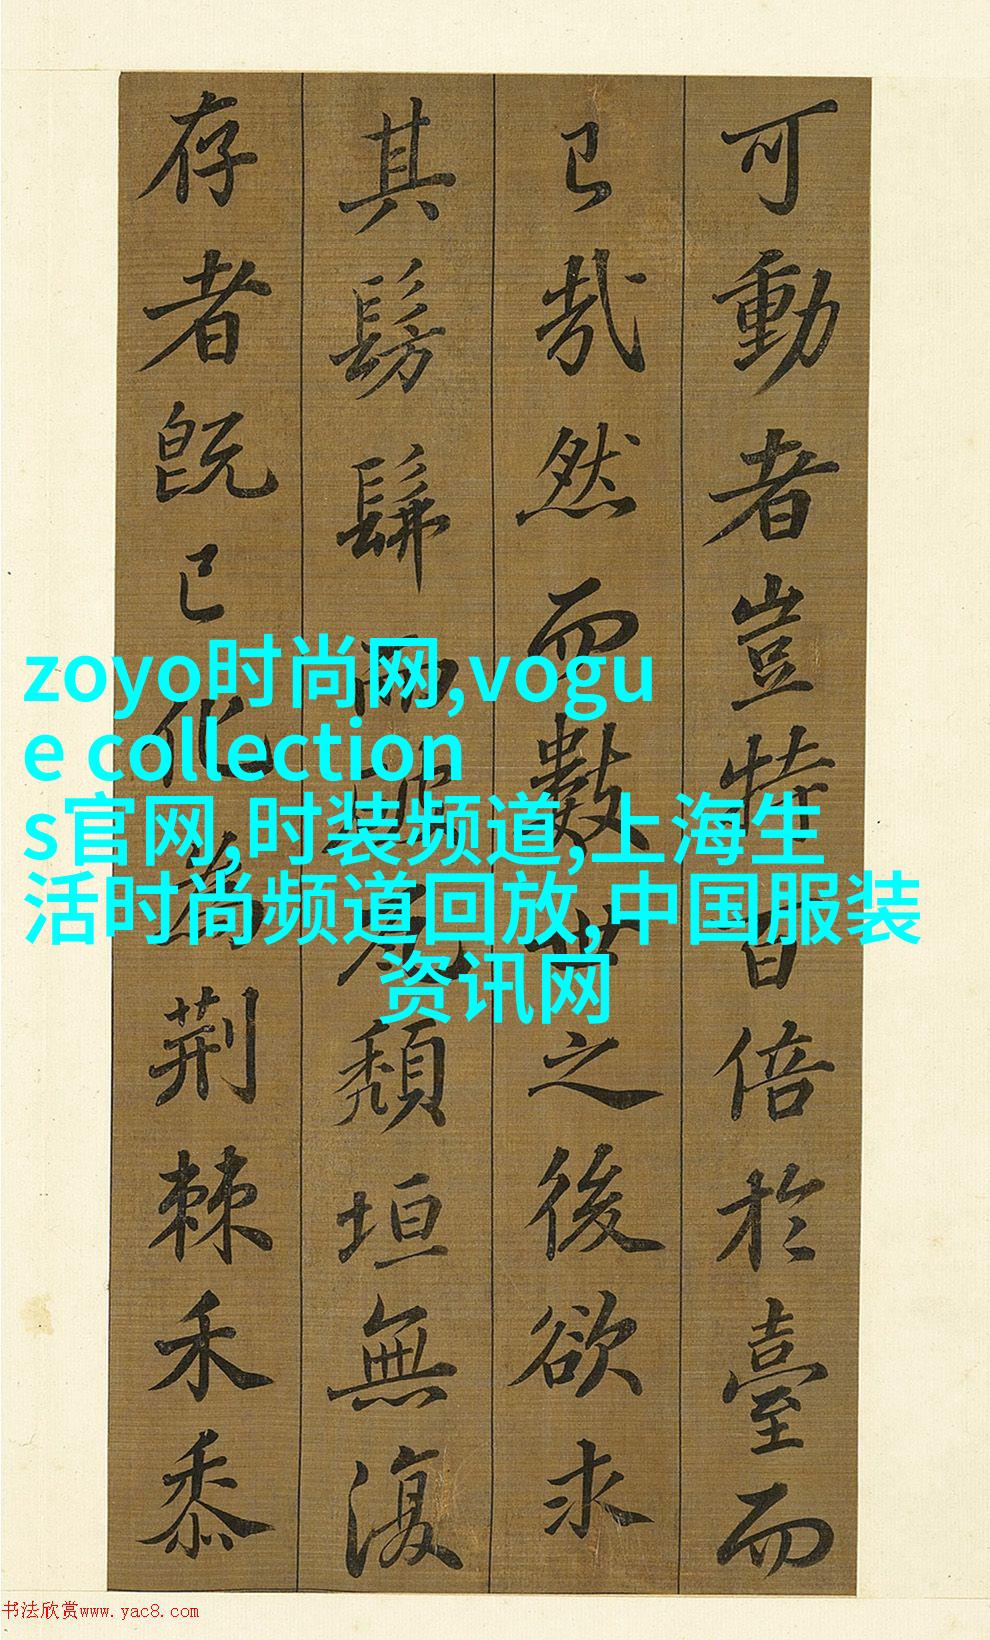 可動者豈特百倍於臺而
已哉然而數世之後欲求
其髣髴而破瓦頹垣無復
存者既已化為荊棘禾黍
zoyo时尚网,vogu
e collection
s官网,时装频道,上海生
活时尚频道回放,中国服装
资讯网
书法欣赏www.yac8.com